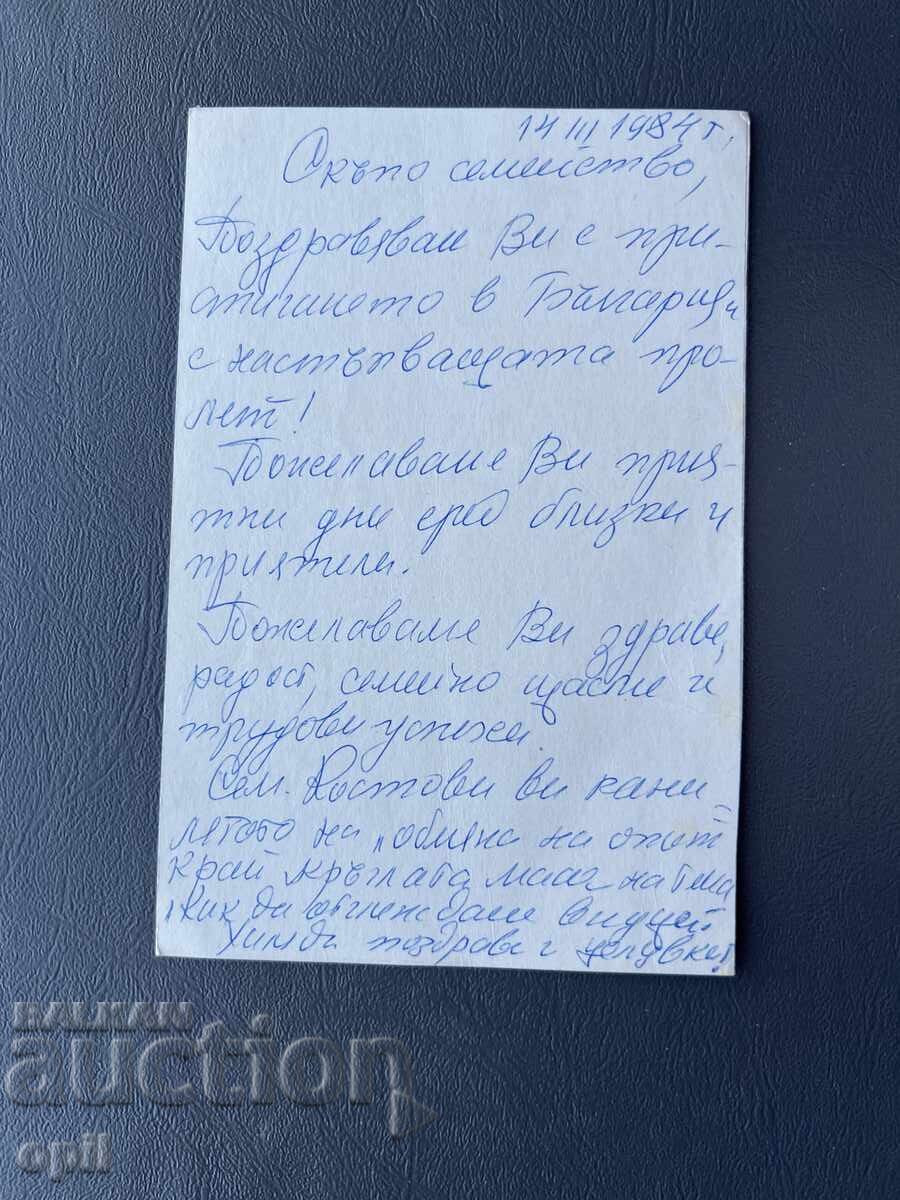 14 III 1984 г.
Скъпо семейство,
Поздравявам Ви с при-
стигането в България и
с настъпващата про-
лет!
Пожелаваме Ви прия-
тни дни сред близки и
приятели.
Пожелаваме Ви здраве,
радост, семейно щастие и
трудови успехи.
Сем. Костови ви кани
лятото на "обмяна на опит
край кръглата маса на тема
"Как да отглеждаме
поздрави и целувки
BALKAN
auction
opil